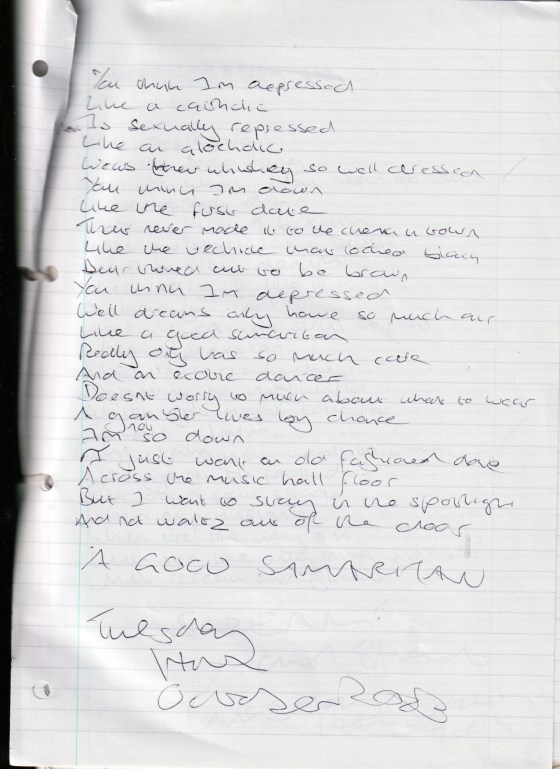 You think Im depressed
Like a catholic
Is sexually repressed
Like an alocholic
Wears whiskey so well dressed
You think Im down
Like the first date
That never made it to the cinema in town
Like the vechicle that looked black
But turned out to be brown
You think Im depressed
Well dreams only have so much air
Like a good samaritan
Really only has so much care
And an exotic dancer
Doesnt worry to much about what to wear
A gambler lives by chance
Im not so down
I just want an old fashioned dance
Across the music hall floor
But I want to stay in the spotlight
And not waltz out of the door
A GOOD SAMARITAN
Tuesday
October